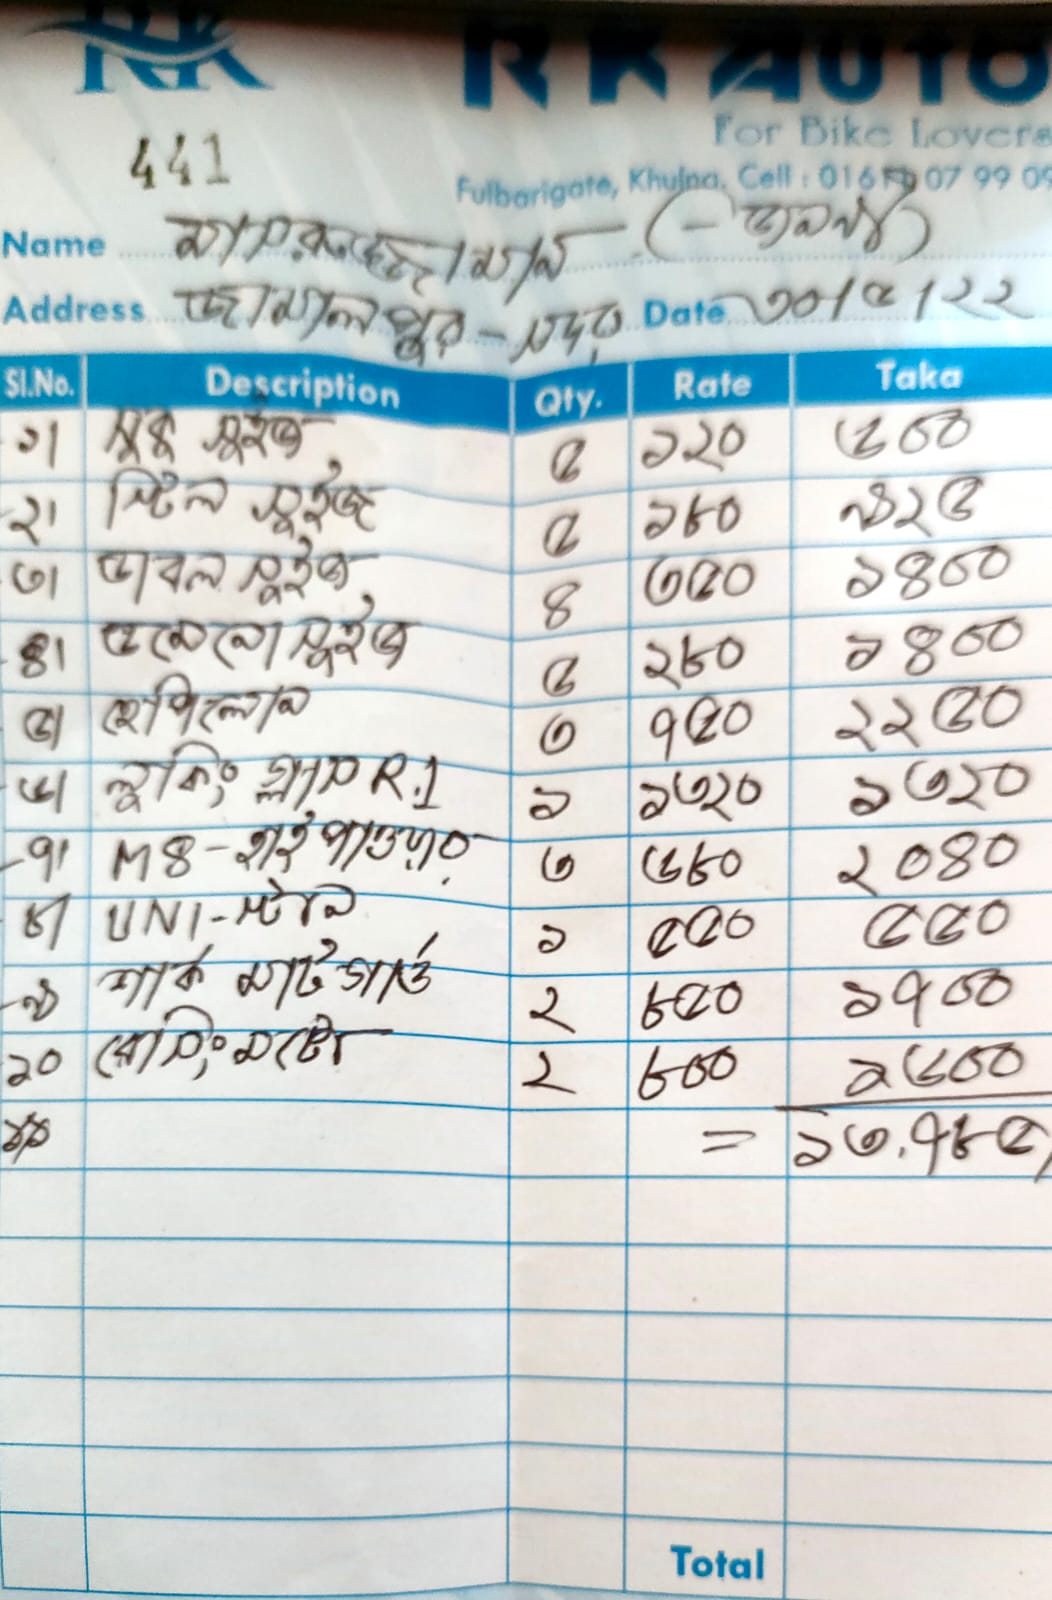 RK RK AUTO
For Bike Lovers
441
Fulbarigate, Khulna. Cell : 016 07 99 09
Name মাসরুজ্জোমান - (-
Address জামালপুর - সদর Date ৩০/৫/২২
Sl.No. Description Qty. Rate Taka
১। সুইজ ৫ ১২০ ৬০০
২। স্টিল সুইজ ৫ ১৮০ ৯২৫
৩। ডাবল সুইজ ৪ ৩৫০ ১৪০০
৪। সুইজ ৫ ২৮০ ১৪০০
৫। হেপিলোন ৩ ৭৫০ ২২৫০
৬। লুকিং গ্লাস R.1 ১ ১৩২০ ১৩২০
৭। M8 - হাই পাওয়ার ৩ ৬৮০ ২০৪০
৮। UNI - স্টান ১ ৫৫০ ৫৫০
৯ শার্ক মাটগার্ড ২ ৮৫০ ১৭০০
১০ রেসিং মটো ২ ৮০০ ১৬০০
= ১৩,৭৮৫/
Total